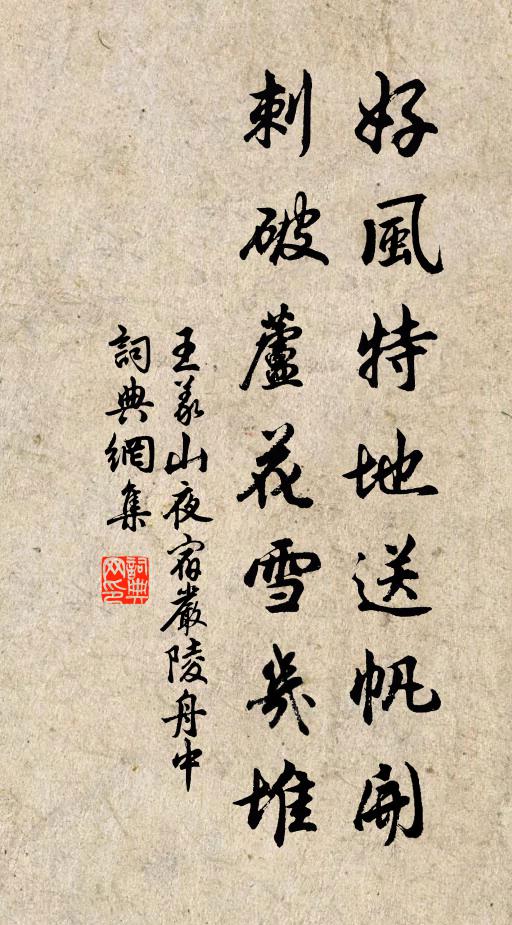 好風特地送帆開
刺破蘆花雪幾堆
王義山夜宿嚴陵舟中
詞典網集
詞典網印